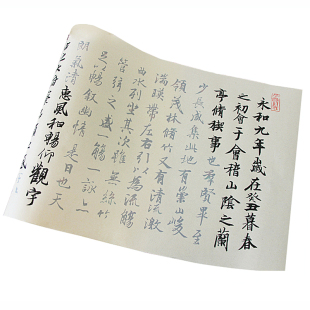 永和九年歲在癸丑暮春
之初會于會稽山陰之蘭
亭脩稧事也羣賢畢至
少長咸集此地有崇山峻
領茂林脩竹又有清流激
湍暎帶左右引以為流觴
曲水列坐其次雖無絲竹
管弦之盛一觴一詠亦
足以暢叙幽情是日也天
朗氣清
惠風和暢仰觀宇